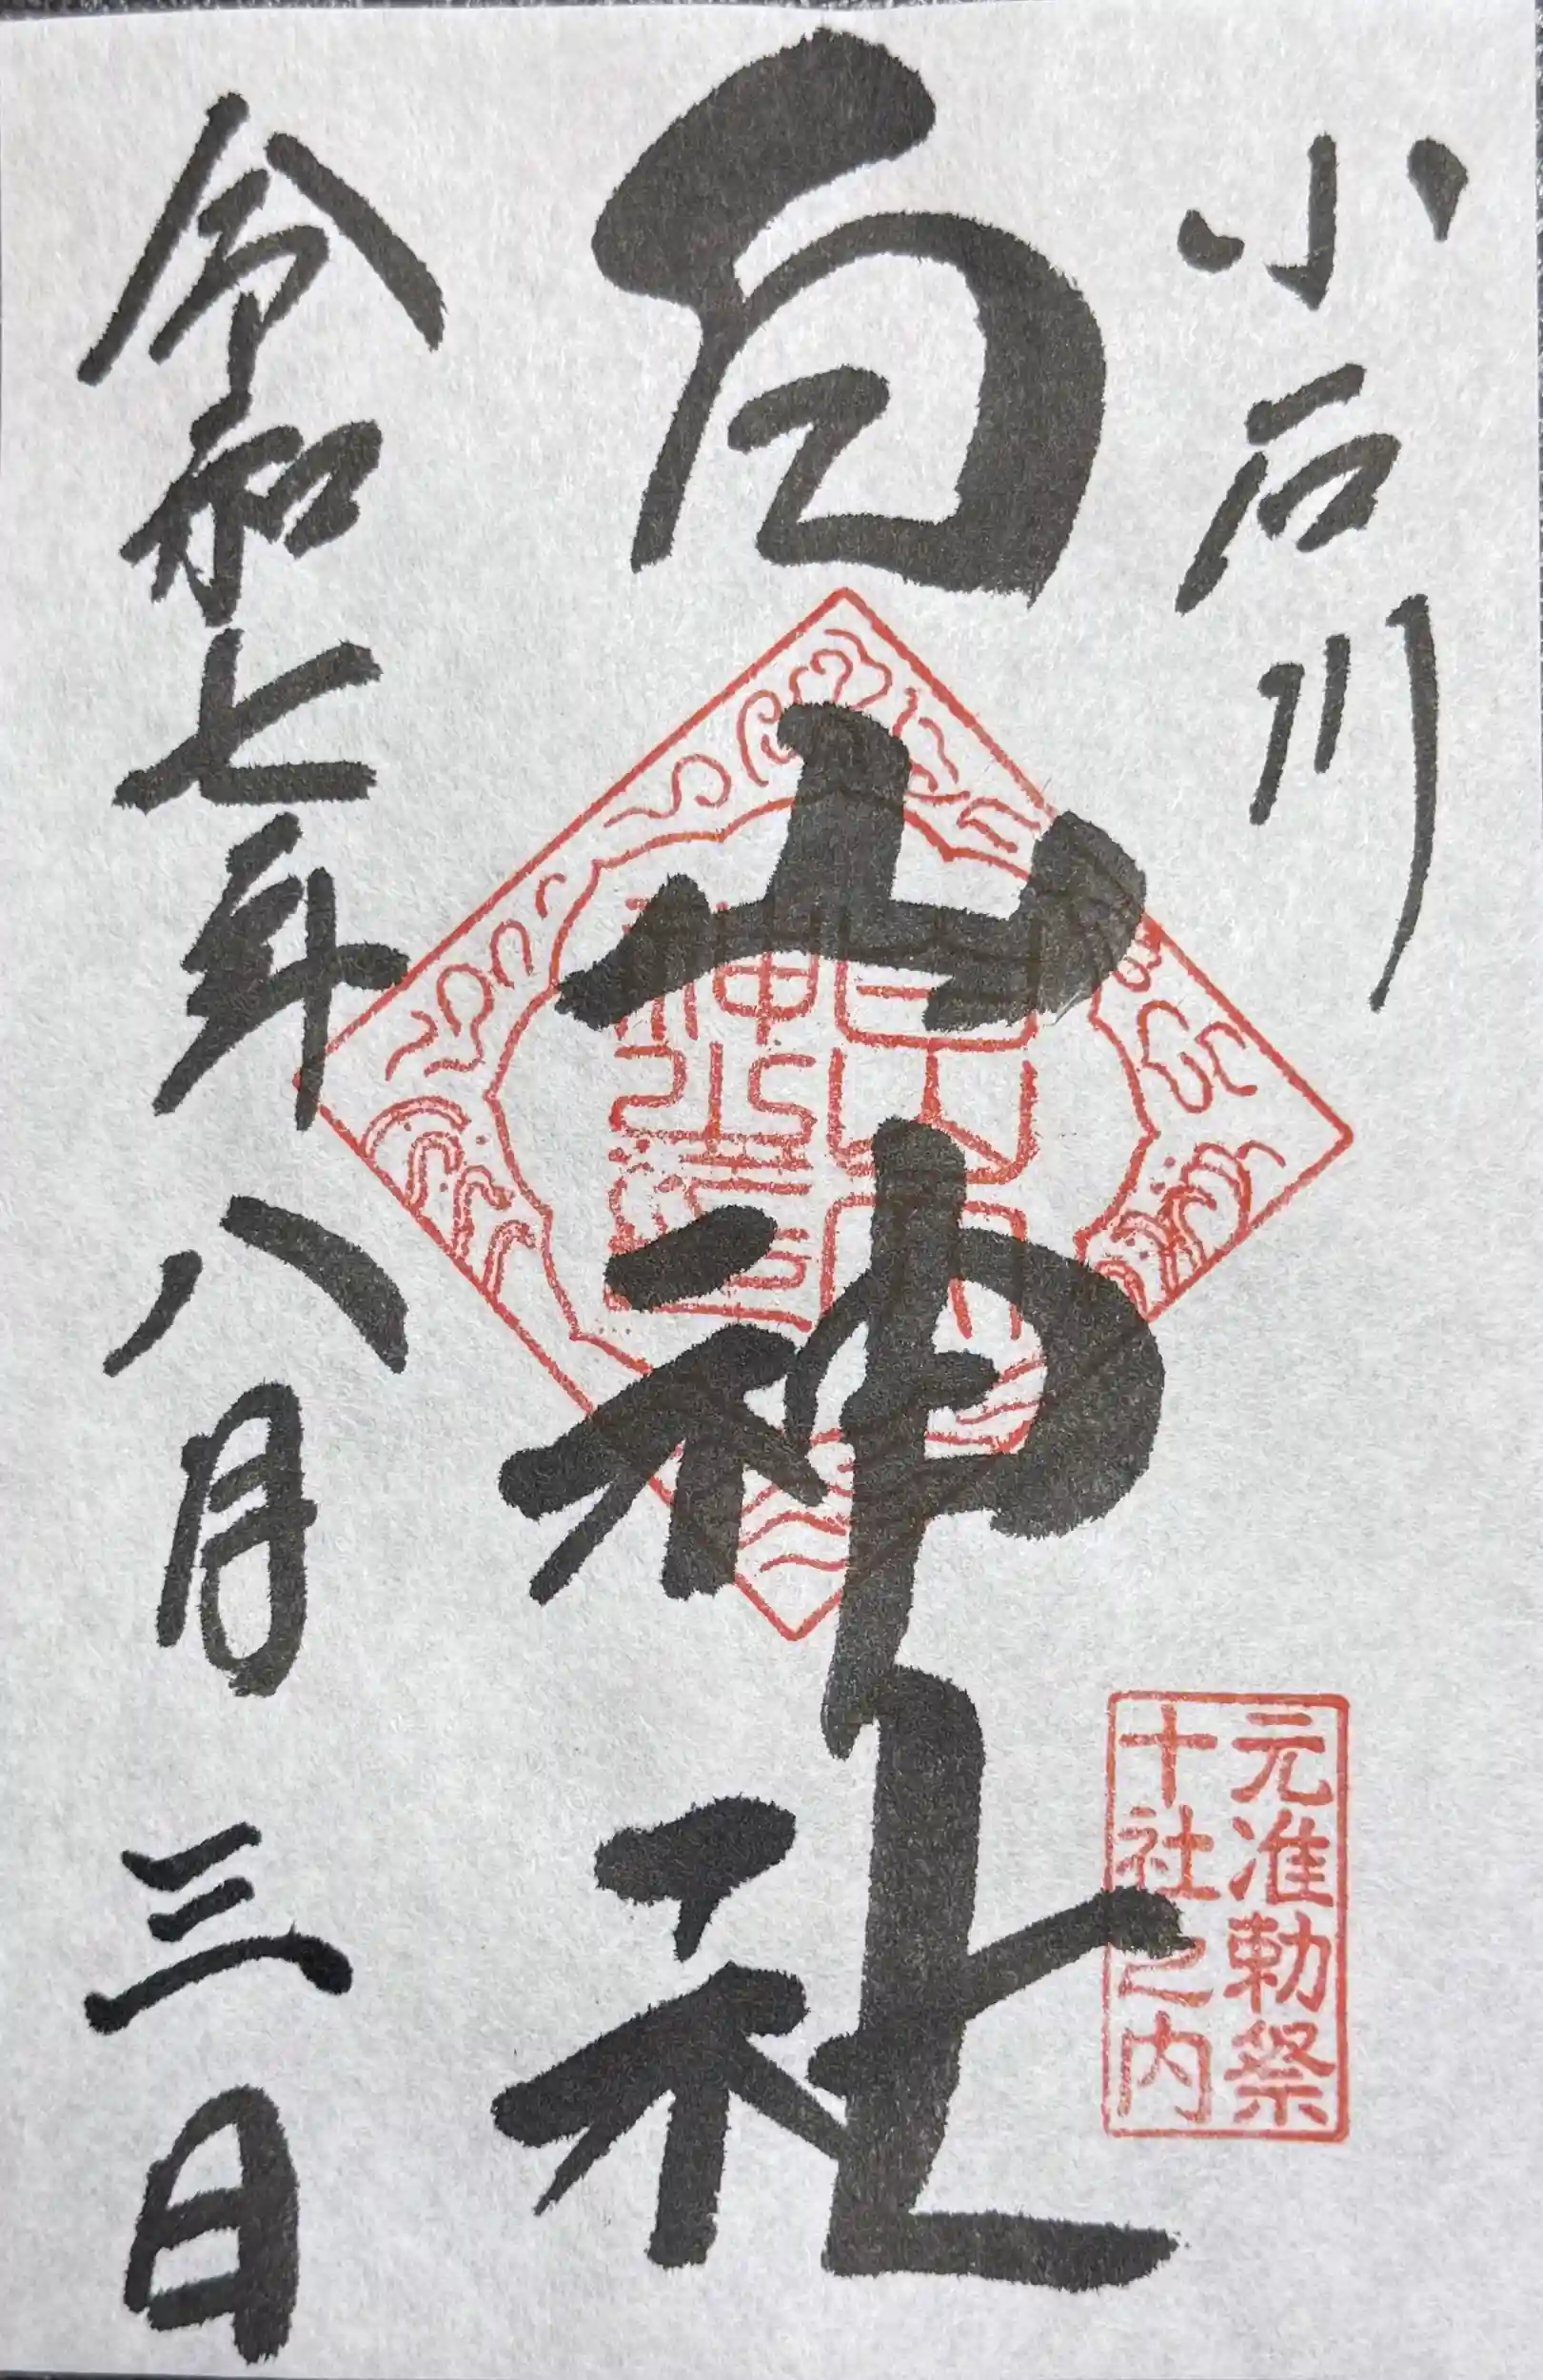 小石川
白山神社
令和七年八月三日
元准勅祭
十社之内